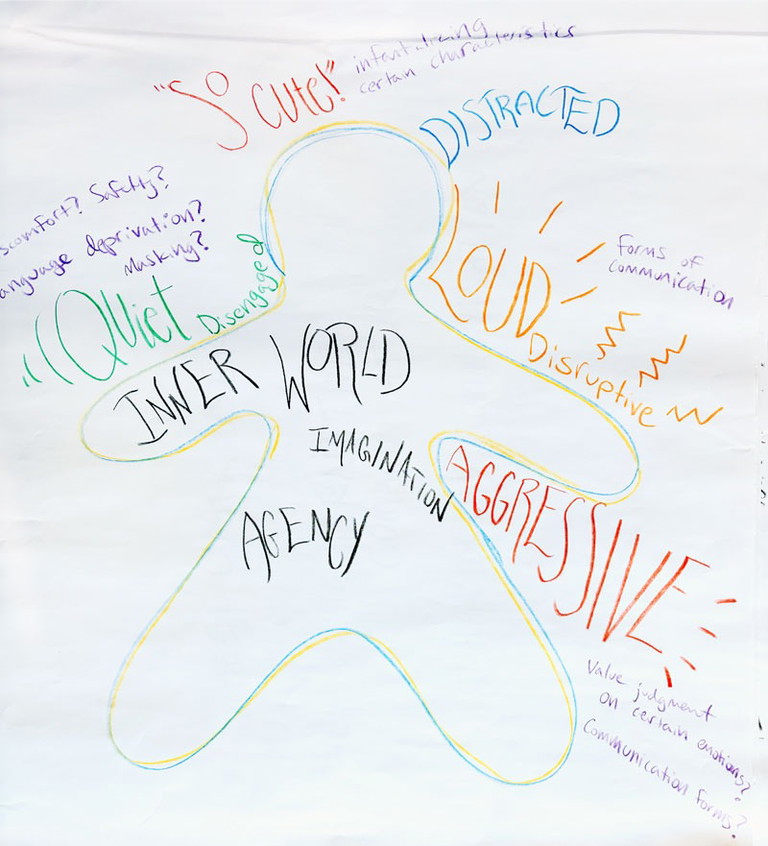 "So cute!"
infantilizing
certain characteristics
DISTRACTED
scomfort? Safety?
anguage deprivation?
Masking?
"Quiet
Disengaged
LOUD
Disruptive
forms of
communication
INNER WORLD
IMAGINATION
AGENCY
AGGRESSIVE
Value judgment
on certain emotions?
Communication forms?